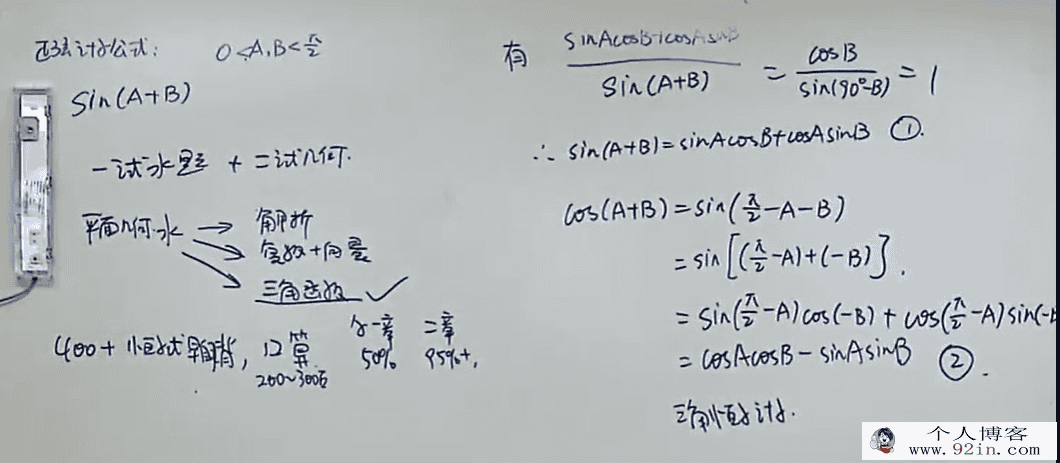 0<A,B<π/2
sin(A+B)
一试水题 + 二试几何.
平面几何水 → 解析
复数+向量
三角函数 ✓
400+
口算
200~300
50% 95%+.
有 (sinAcosB+cosAsinB)/sin(A+B) = cosB/sin(90°-B) = 1
∴ sin(A+B)=sinAcosB+cosAsinB ①.
cos(A+B)=sin(π/2-A-B)
=sin[(π/2-A)+(-B)].
=sin(π/2-A)cos(-B)+cos(π/2-A)sin(-B
=cosAcosB-sinAsinB ②.
个人博客
www.92in.com